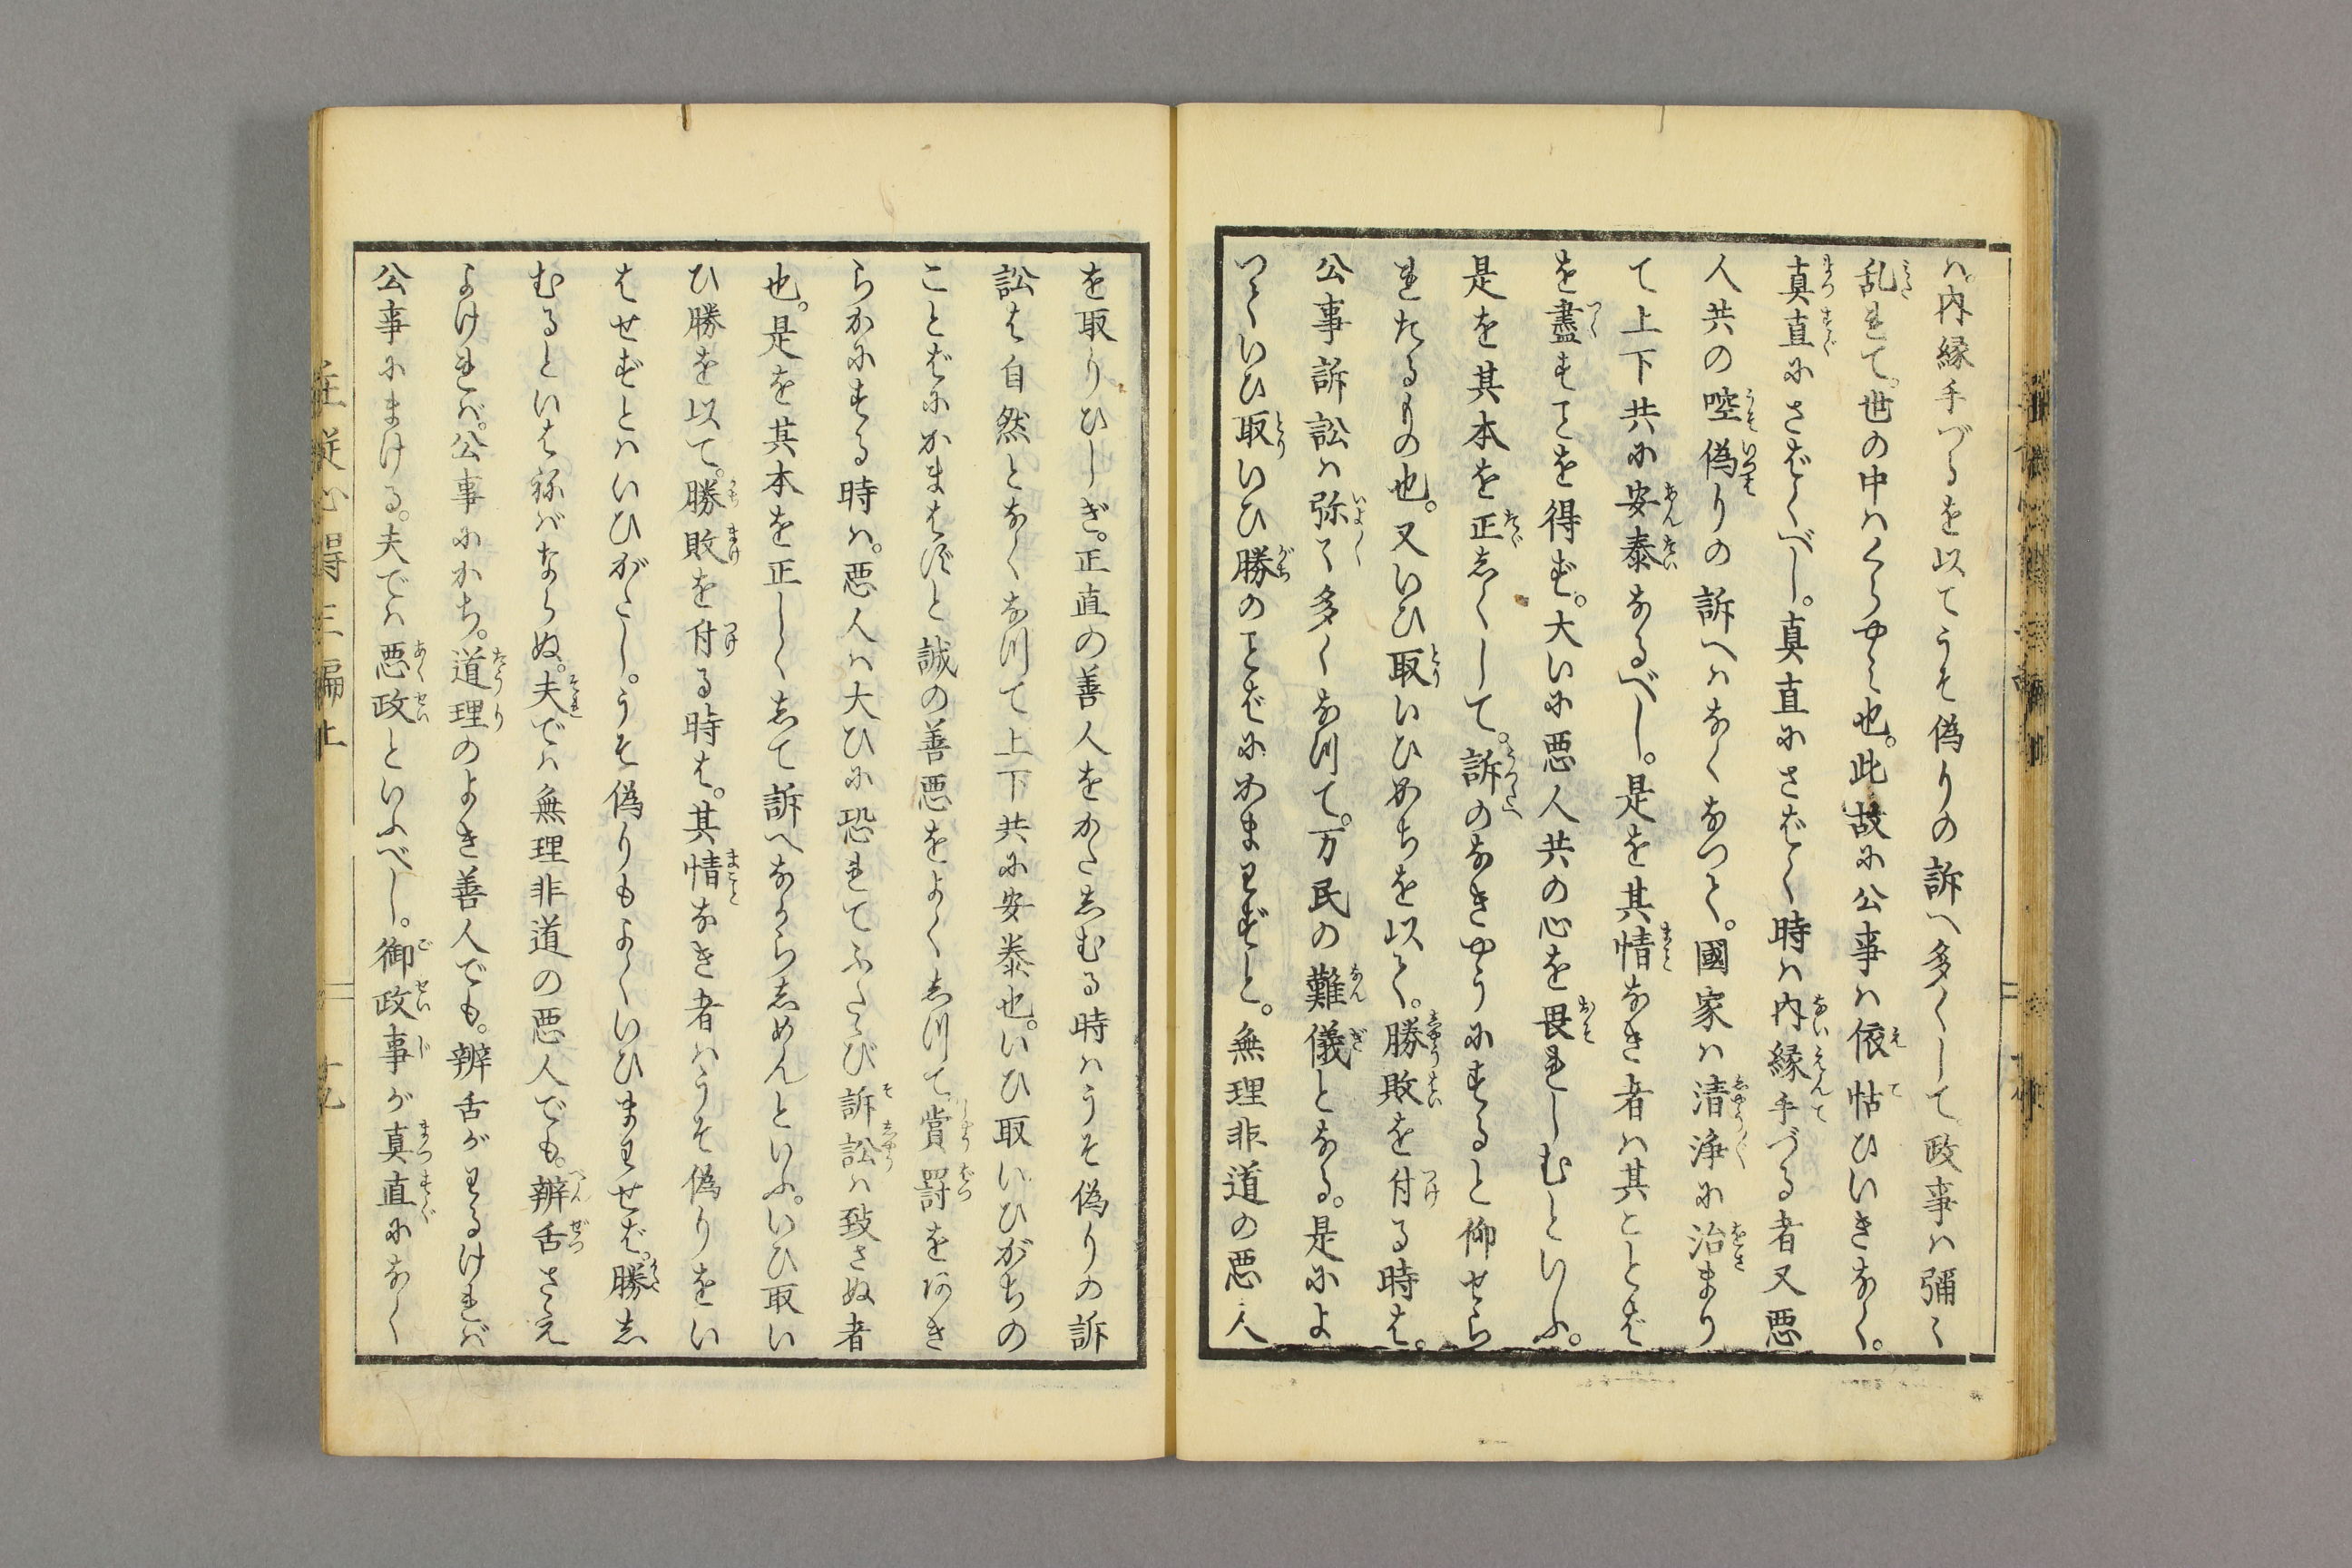 ハ。内縁手づるを以てうそ偽りの訴へ多くして。政事ハ彌〻
乱れて。世の中ハくらやミ也。此故に公事ハ依怙ひいきなく。
真直にさばくべし。真直にさばく時ハ内縁手づる者又悪
人共の啌偽りの訴へハなくなつて。國家ハ清浄に治まり
て上下共に安泰なるべし。是を其情なき者ハ其ことば
を盡すことを得ず。大いに悪人共の心を畏れしむといふ。
是を其本を正しくして。訴のなきやうにすると仰せら
れたるもの也。又いひ取いひかちを以て。勝敗を付る時は。
公事訴訟ハ弥〻多くなつて。万民の難儀となる。是によ
つていひ取いひ勝のことばにかまわずと。無理非道の悪人
を取りひしぎ。正直の善人をかたしむる時ハうそ偽りの訴
訟は自然となくなつて上下共に安泰也。いひ取いひがちの
ことばにかまはずと誠の善悪をよくしつて。賞罰をあき
らかにする時ハ。悪人ハ大ひに恐れてふたゝび訴訟ハ致さぬ者
也。是を其本を正しくして訴へなからしめんといふ。いひ取い
ひ勝を以て。勝敗を付る時は。其情なき者ハうそ偽りをい
はせずとハいひがたし。うそ偽りもよくいひまわせば。勝し
むるといはねばならぬ。夫でハ無理非道の悪人でも。辨舌さえ
よければ。公事にかち。道理のよき善人でも。辨舌がわるければ
公事にまける。夫でハ悪政といふべし。御政事が真直になく
心得三編上